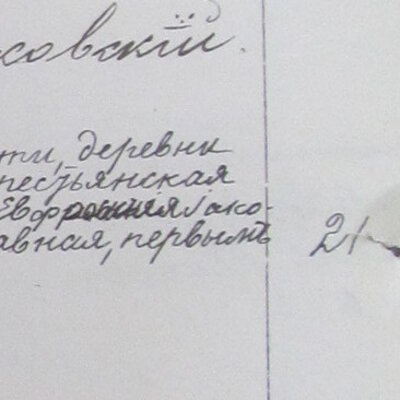 совскій.
ти, деревни
песзьянская
Евфросинія Iако-
авная, первымъ
21